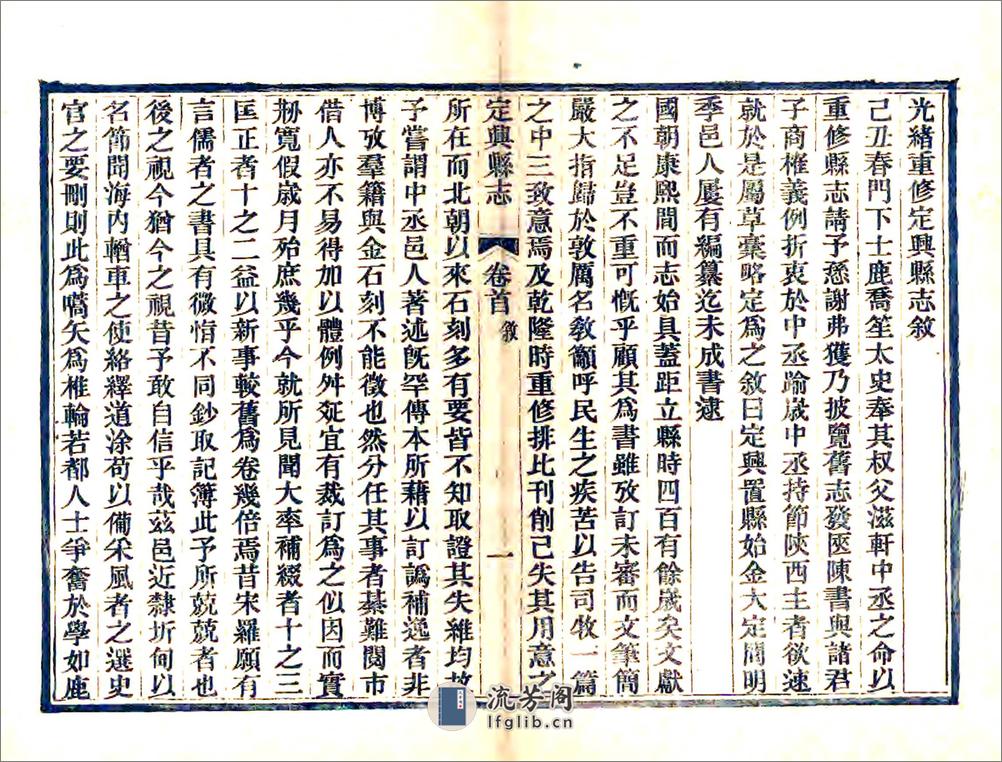 光緒重修定興縣志敘
己丑春門下士鹿喬笙太史奉其叔父滋軒中丞之命以
重修縣志請予愻謝弗獲乃披覽舊志發匧陳書與諸君
子商榷義例折衷於中丞踰歲中丞持節陝西主者欲速
就於是屬草稾略定為之敘曰定興置縣始金大定間明
季邑人屢有編纂迄未成書逮
國朝康熙間而志始具蓋距立縣時四百有餘歲矣文獻
之不足豈不重可慨乎顧其為書雖攷訂未審而文筆簡
嚴大指歸於敦厲名教籲呼民生之疾苦以告司牧一篇
之中三致意焉及乾隆時重修排比刊削已失其用意之
定興縣志
卷首
敘
一
所在而北朝以來石刻多有要皆不知取證其失維均故
予嘗謂中丞邑人著述旣罕傳本所藉以訂譌補逸者非
博攷羣籍與金石刻不能徵也然分任其事者綦難閱市
借人亦不易得加以體例舛㢟宜有裁訂為之似因而實
刱寬假歲月殆庶幾乎今就所見聞大率補綴者十之三
匡正者十之二益以新事較舊為卷幾倍焉昔宋羅願有
言儒者之書具有微恉不同鈔取記簿此予所兢兢者也
後之視今猶今之視昔予敢自信乎哉茲邑近隸圻甸以
名節聞海內輶車之使絡繹道涂苟以備采風者之選史
官之要刪則此為嚆矢為椎輪若都人士爭奮於學如鹿
流芳阁
lfglib.cn